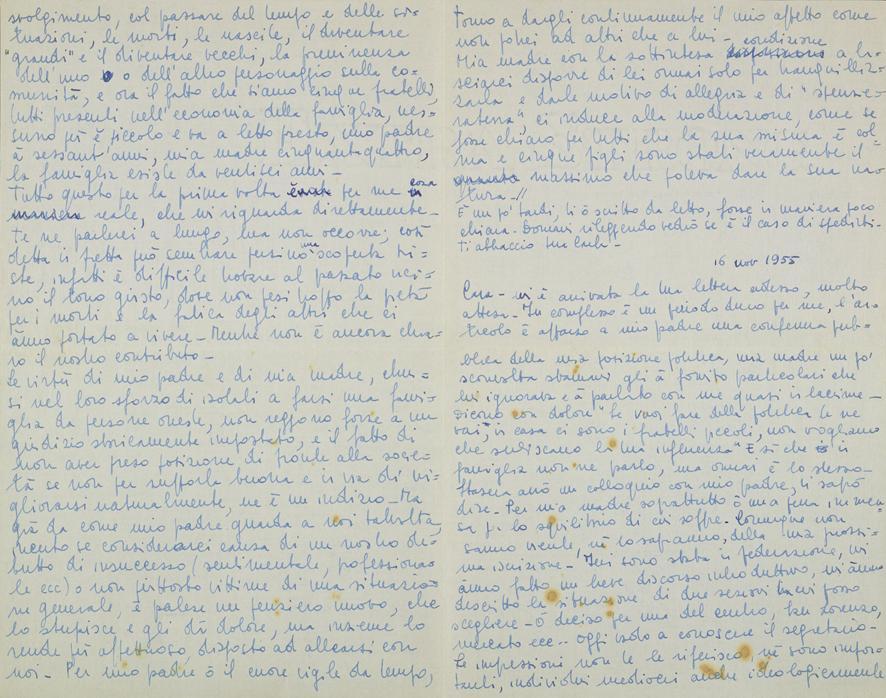 svolgimento, col passare del tempo e delle si=
tuazioni, le morti, le nascite, il diventare
"grandi" e il diventare vecchi, la preminenza
dell'uno o dell'altro personaggio sulla co=
munità, e ora il fatto che siamo cinque fratelli,
tutti presenti nell'economia della famiglia, nes=
suno più è piccolo e va a letto presto, mio padre
à sessant'anni, mia madre cinquantaquattro,
la famiglia esiste da ventisei anni -
Tutto questo per la prima volta per me cosa
reale, che mi riguarda direttamente -
Te ne parlerei a lungo, ma non occorre; così
detta in fretta può sembrare persino una scoperta tri=
ste, infatti è difficile trovare al passato vici=
no il tono giusto, dove non pesi troppo la pietà
per i morti e la fatica degli altri che ci
ànno portato a vivere - Mentre non è ancora chia=
ro il nostro contributo -
Le virtù di mio padre e di mia madre, chiu=
si nel loro sforzo di isolati a farsi una fami=
glia da persone oneste, non reggono forse a un
giudizio storicamente impostato, e il fatto di
non aver preso posizione di fronte alla socie=
tà se non per supporla buona e in via di mi=
gliorarsi naturalmente, ne è un indizio - Ma
già da come mio padre guarda a noi talvolta,
incerto se considerarci causa di un nostro de=
butto di insuccesso (sentimentale, professiona=
le ecc) o non piuttosto vittime di una situazio=
ne generale, è palese un pensiero nuovo, che
lo stupisce e gli dà dolore, ma insieme lo
rende più affettuoso, disposto ad allearsi con
noi - Per mio padre ò il cuore vigile da tempo,
torno a dargli continuamente il mio affetto come
non potrei ad altri che a lui -
Mia madre con la sottintesa condizione a la=
sciarci disporre di lei ormai solo per tranquilliz=
zarla e darle motivo di allegria e di "spensie=
ratezza", ci induce alla moderazione, come se
fosse chiaro per tutti che la sua misura è col=
ma e cinque figli sono stati veramente il =
massimo che poteva dare la sua na=
tura - //
E' un po' tardi, ti ò scritto da letto, forse in maniera poco
chiara. Domani rileggendo vedrò se è il caso di spedirti -
Ti abbraccio tua Carla -
16 nov 1955
Cara - mi è arrivata la tua lettera adesso, molto
attesa - In complesso è un periodo duro per me, l'ar=
ticolo è apparso a mio padre una conferma pub=
blica della mia posizione politica, mia madre un po'
sconvolta gli à fornito particolari che
lui ignorava e à parlato con me quasi in lacrime -
Dicono con dolore "Se vuoi fare della politica te ne
vai, in casa ci sono i fratelli piccoli, non vogliamo
che subiscano la tua influenza" E sì che in
famiglia non ne parlo, ma ormai è lo stesso -
Stasera avrò un colloquio con mio padre, ti saprò
dire - Per mia madre soprattutto ò una pena immen=
sa p. lo squilibrio di cui soffre - Comunque non
sanno niente, nè lo sapranno, della mia prossi=
ma iscrizione - Ieri sono stata in federazione, mi
ànno fatto un breve discorso introduttivo, mi ànno
descritto la situazione di due sezioni tra cui posso
scegliere - ò deciso per una del centro, San Lorenzo,
mercato ecc - Oggi vado a conoscere il segretario -
Le impressioni non te le riferisco, nè sono impor=
tanti, individui mediocri anche ideologicamente